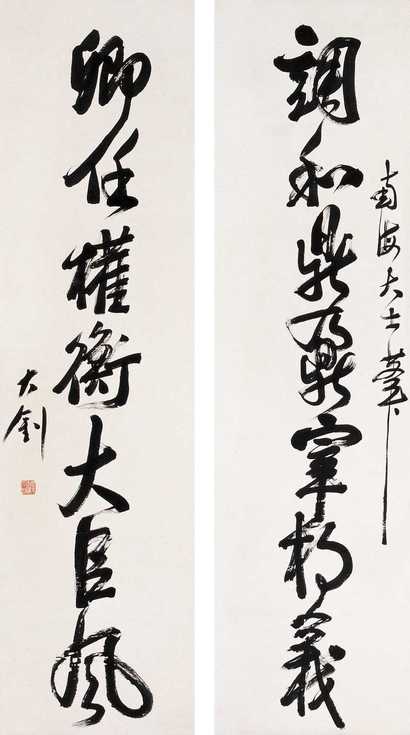 調和鼎鼐宰相義
南海大士筆
卿任權衡大臣風
大釗